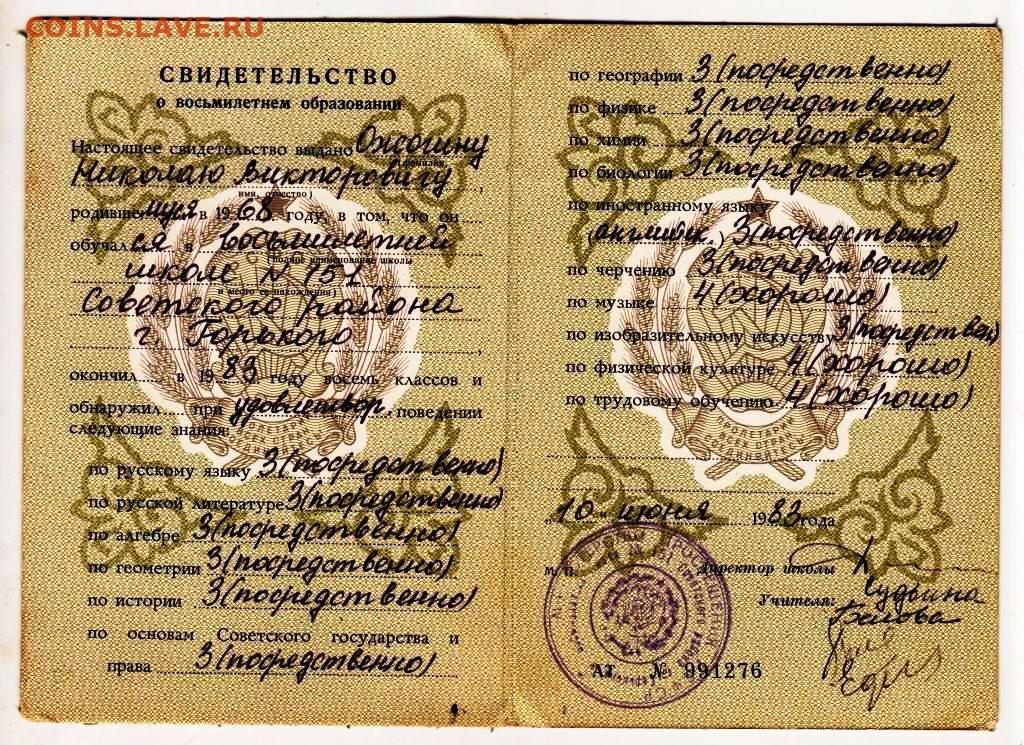 COINS.LAVE.RU
СВИДЕТЕЛЬСТВО
о восьмилетнем образовании
Настоящее свидетельство выдано Ожогину
(фамилия,
Николаю Викторовичу,
имя, отчество)
родившемуся в 1968 году, в том, что он
обучался в восьмилетней
(полное наименование школы
школе № 151
и место ее нахождения)
Советского района
г. Горького,
окончил в 1983 году восемь классов и
обнаружил при удовлетвор. поведении
следующие знания:
по русскому языку 3 (посредственно)
по русской литературе 3 (посредственно)
по алгебре 3 (посредственно)
по геометрии 3 (посредственно)
по истории 3 (посредственно)
по основам Советского государства и
права 3 (посредственно)
по географии 3 (посредственно)
по физике 3 (посредственно)
по химии 3 (посредственно)
по биологии 3 (посредственно)
по иностранному языку
(английск.) 3 (посредственно)
по черчению 3 (посредственно)
по музыке 4 (хорошо)
по изобразительному искусству 3 (посредствен)
по физической культуре 4 (хорошо)
по трудовому обучению 4 (хорошо)
ПРОЛЕТАРИИ
ВСЕХ СТРАН
СОЕДИНЯЙТЕСЬ
„10" июня 1983 года
М. П.
Директор школы
Учителя:
АТ № 991276